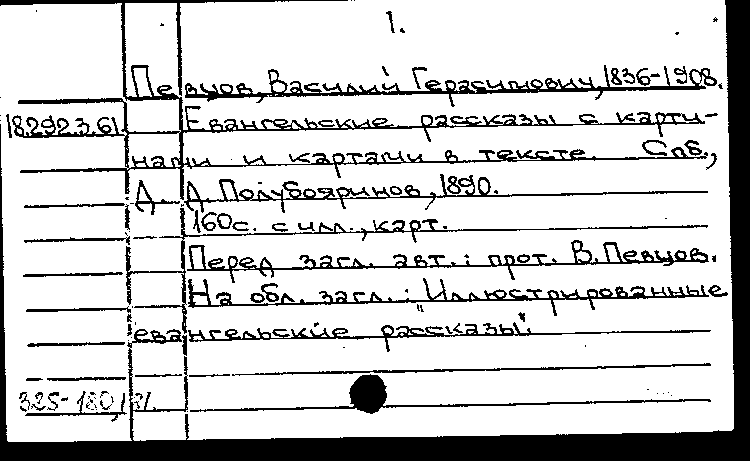 1.
Певцов, Василий Герасимович, 1836-1908.
18.292.3.61. Евангельские рассказы с карти-
нами и картами в тексте. Спб.,
Д. Д. Полубояринов, 1890.
160с. с илл., карт.
Перед загл. авт.: прот. В. Певцов.
На обл. загл.: "Иллюстрированные
евангельские рассказы".
325-180,